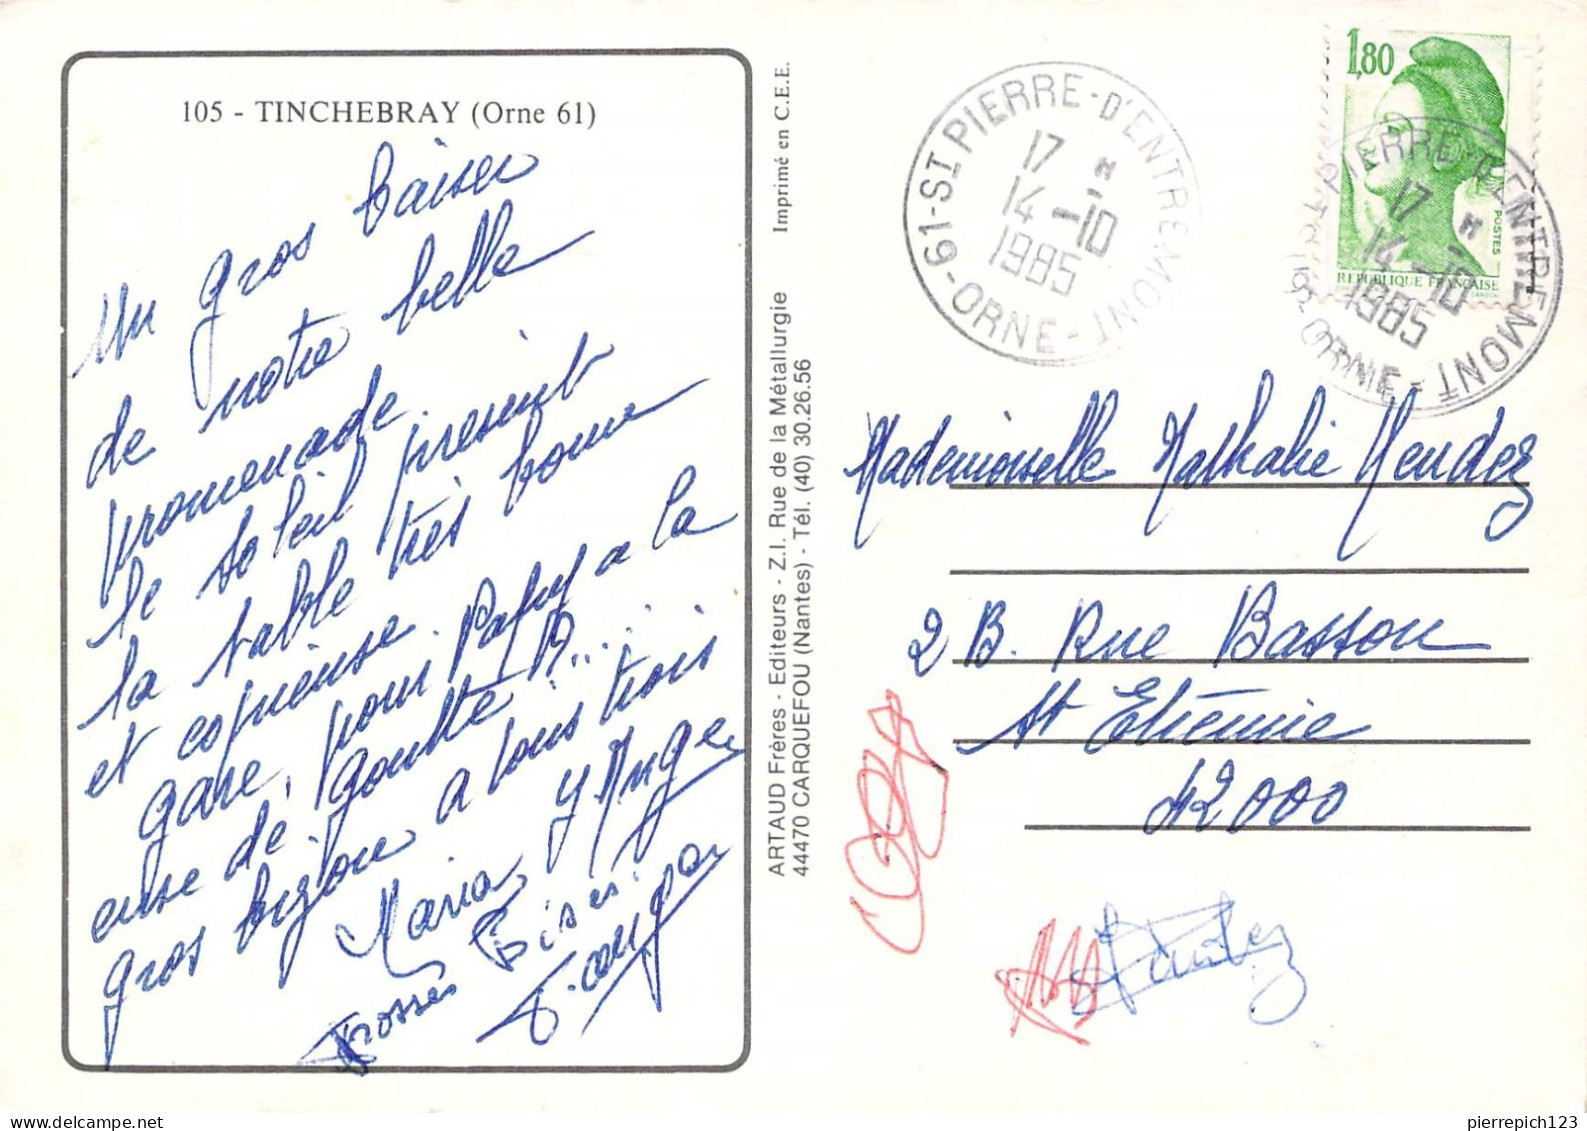 105 - TINCHEBRAY (Orne 61)
Un gros baiser
de notre belle
promenade
le soleil present
la table très bonne
et copieuse.
gare, pour Papy a la
cure de goutte B....
gros bizou a tous trois
Maria, y Ange
Grosses Bises
ARTAUD Frères - Editeurs - Z.I. Rue de la Métallurgie
44470 CARQUEFOU (Nantes) - Tél. (40) 30.26.56
Imprimé en C.E.E.
61-ST PIERRE-D'ENTREMONT
17 H
14-10
1985
-ORNE-
1,80
POSTES
REPUBLIQUE FRANÇAISE
GANDON
PIERRE-D'ENTREMONT
17 H
14-10
1985
ORNE-
Mademoiselle Nathalie Mendez
2 B. Rue Basson
St Etienne
42000
pierrepich123